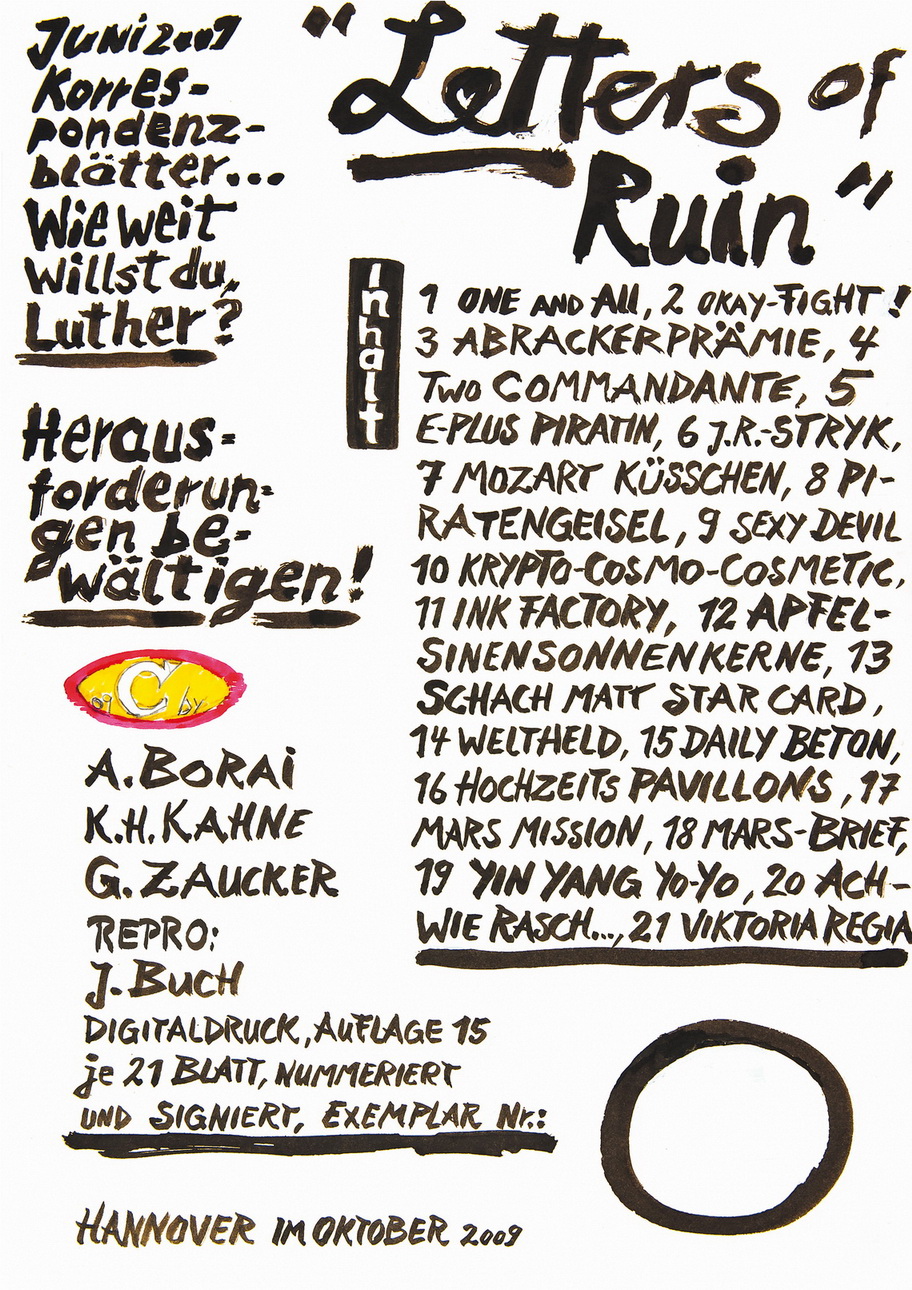 Juni 2009
Korres-
pondenz-
blätter...
Wie weit
willst du,
Luther?
Heraus-
forderun-
gen be-
wältigen!
"Letters of
Ruin"
Inhalt
1 ONE AND All, 2 OKAY-FIGHT!
3 ABRACKERPRÄMIE, 4
Two COMMANDANTE, 5
E-PLUS PIRATIN, 6 J.R.-STRYK,
7 MOZART KÜSSCHEN, 8 PI-
RATENGEISEL, 9 SEXY DEVIL
10 KRYPTO-COSMO-COSMETIC,
11 INK FACTORY, 12 APFEL-
SINENSONNENKERNE, 13
SCHACH MATT STAR CARD,
14 WELTHELD, 15 DAILY BETON,
16 HOCHZEITS PAVILLONS, 17
MARS MISSION, 18 MARS-BRIEF,
19 YIN YANG Yo-Yo, 20 ACH-
WIE RASCH..., 21 VIKTORIA REGIA
09 C by
A. BORAi
K.H. KAHNE
G. ZAUCKER
REPRO:
J. BUCH
DIGITALDRUCK, AUFLAGE 15
je 21 BLATT, NUMMERIERT
UND SIGNIERT, EXEMPLAR Nr.:
HANNOVER IM OKTOBER 2009